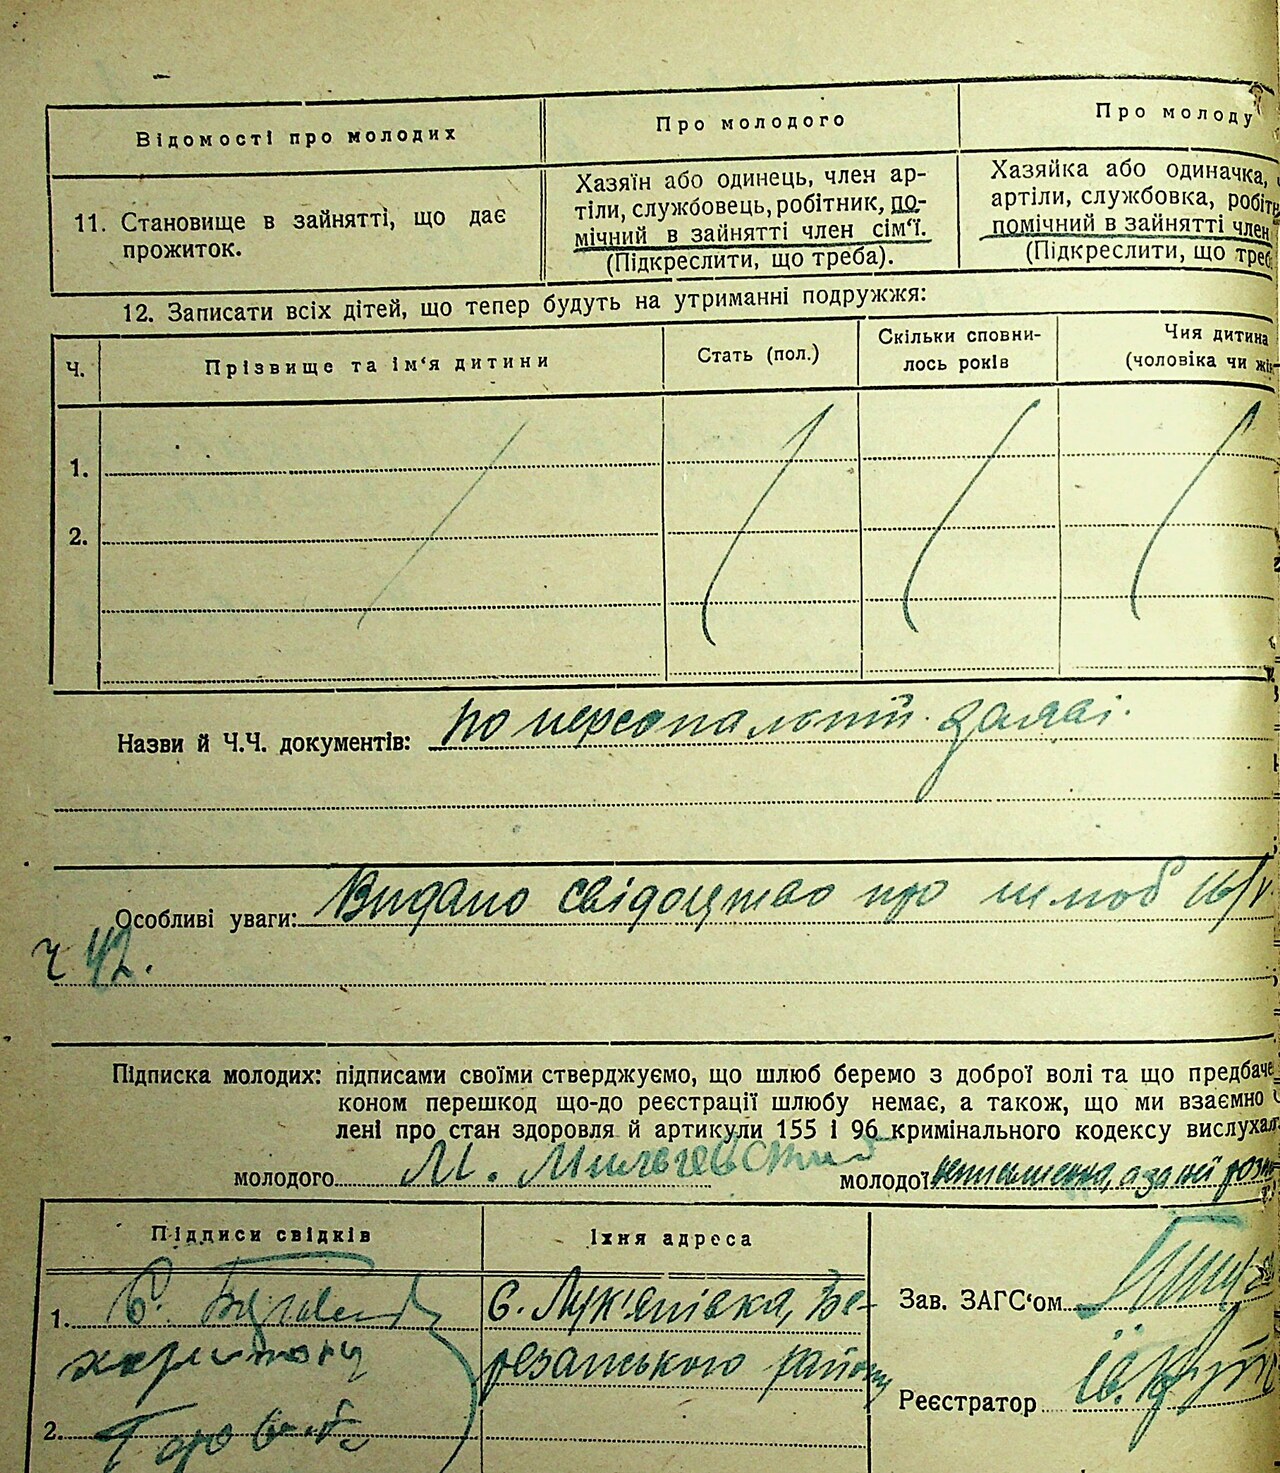 Відомості про молодих
Про молодого
Про молоду
11. Становище в зайнятті, що дає
прожиток.
Хазяїн або одинець, член ар-
тіли, службовець, робітник, по-
мічний в зайнятті член сім'ї.
(Підкреслити, що треба).
Хазяйка або одиначка,
артіли, службовка, робітн
помічний в зайнятті член
(Підкреслити, що треб
12. Записати всіх дітей, що тепер будуть на утриманні подружжя:
Ч.
Прізвище та ім'я дитини
Стать (пол.)
Скільки сповни-
лось років
Чия дитина
(чоловіка чи жін
1.
2.
Назви й Ч.Ч. документів: по персональній заяві.
Особливі уваги: Видано свідоцтво про шлюб 16/V
ч 42.
Підписка молодих: підписами своїми стверджуємо, що шлюб беремо з доброї волі та що предбаче
коном перешкод що-до реєстрації шлюбу немає, а також, що ми взаємно
лені про стан здоровля й артикули 155 і 96 кримінального кодексу вислухал
молодого М.
молодої неписьменна, а за неї розп
Підписи свідків
Їхня адреса
1.
С. Лук'янівка, Бе-
резанського району
2.
Зав. ЗАГС'ом
Реєстратор